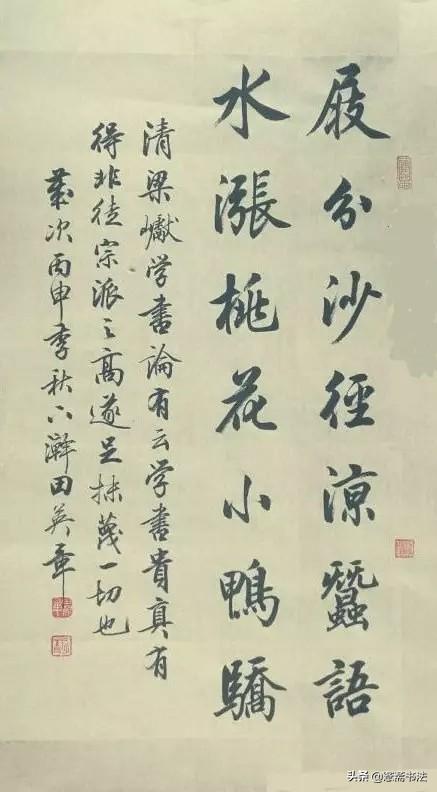 屐分沙徑涼蠶語
水漲桃花小鴨驕
清梁巘学書論有云学書貴真有
得非徒宗派之高遂足抹蔑一切也
歲次丙申季秋下澣田英章
头条 @斋书法